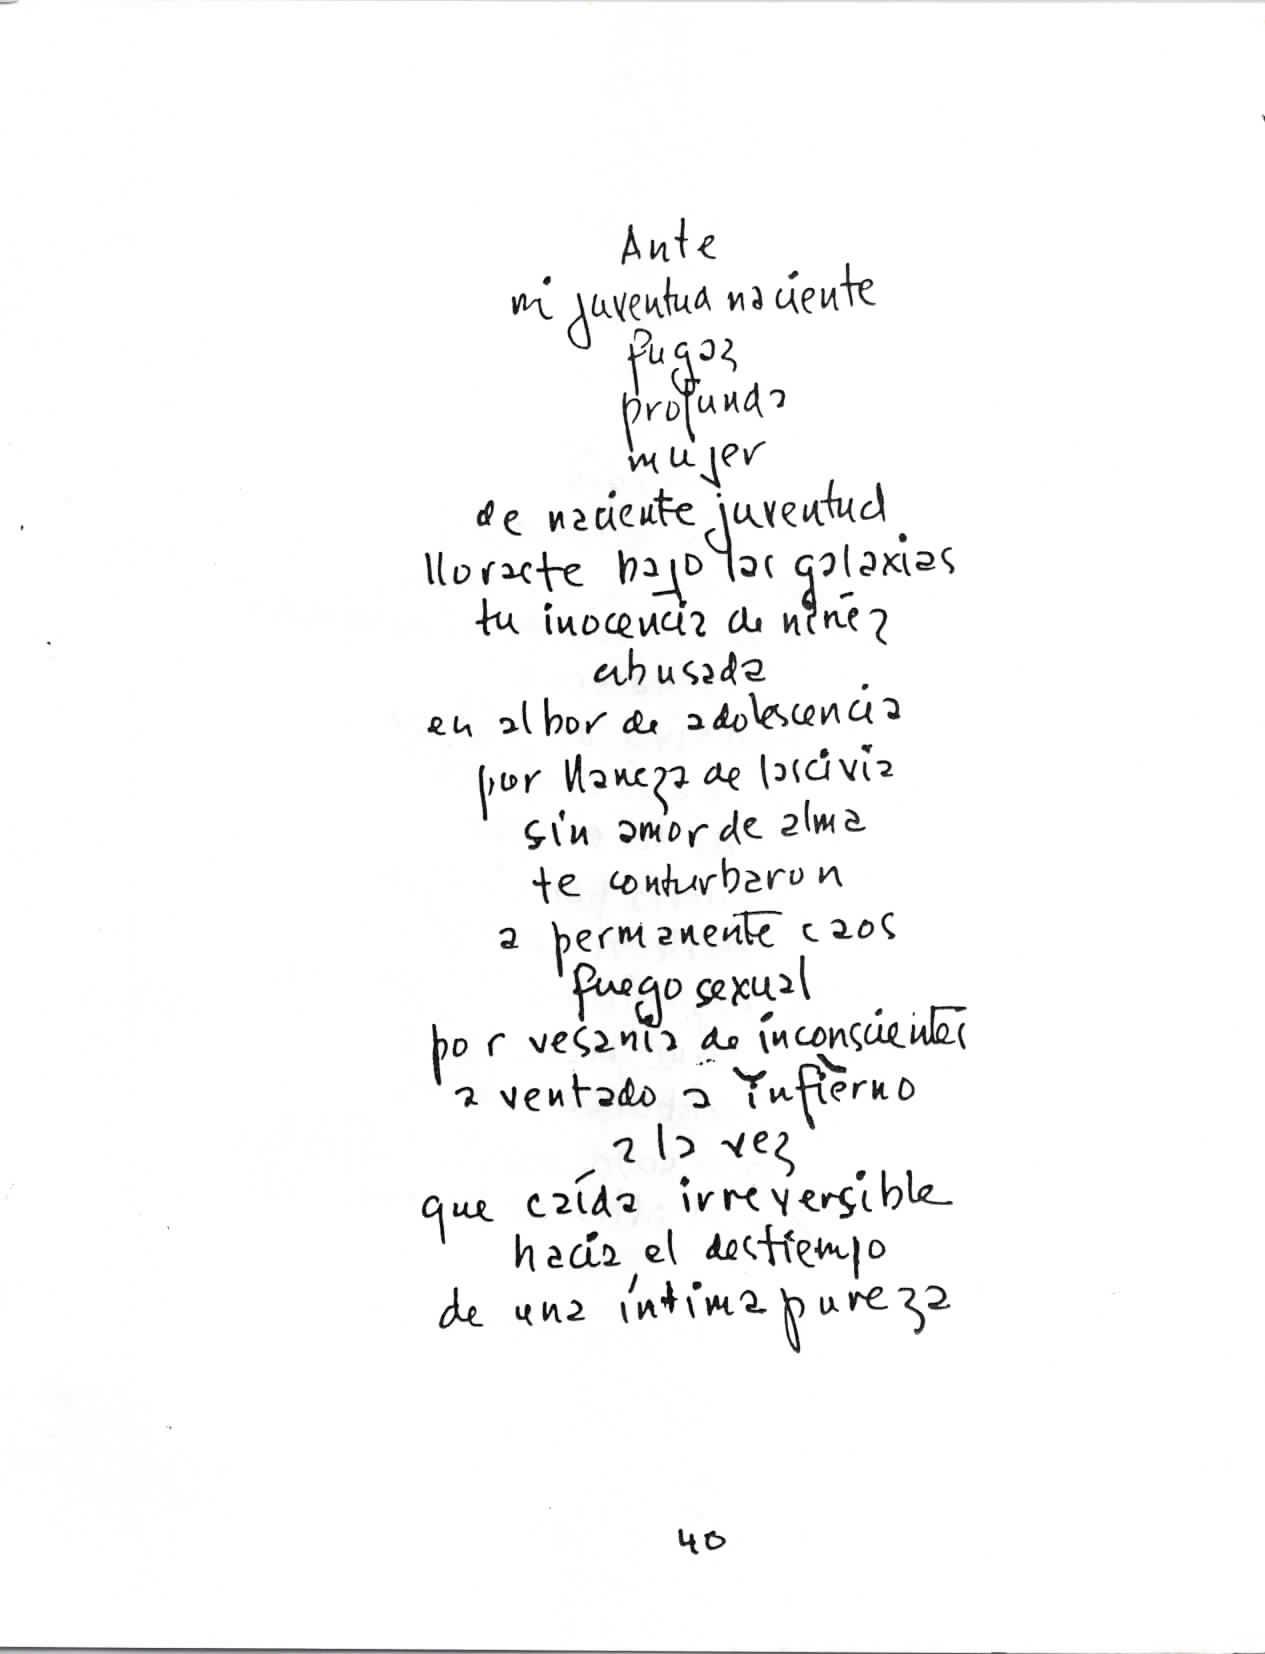 Ante
mi juventud naciente
fugaz
profunda
mujer
de naciente juventud
lloraste bajo las galaxias
tu inocencia de niñez
abusada
en albor de adolescencia
por llaneza de lascivia
sin amor de alma
te conturbaron
a permanente caos
fuego sexual
por vesania de inconscientes
aventado a infierno
a la vez
que caída irreversible
hacia el destiempo
de una íntima pureza
40